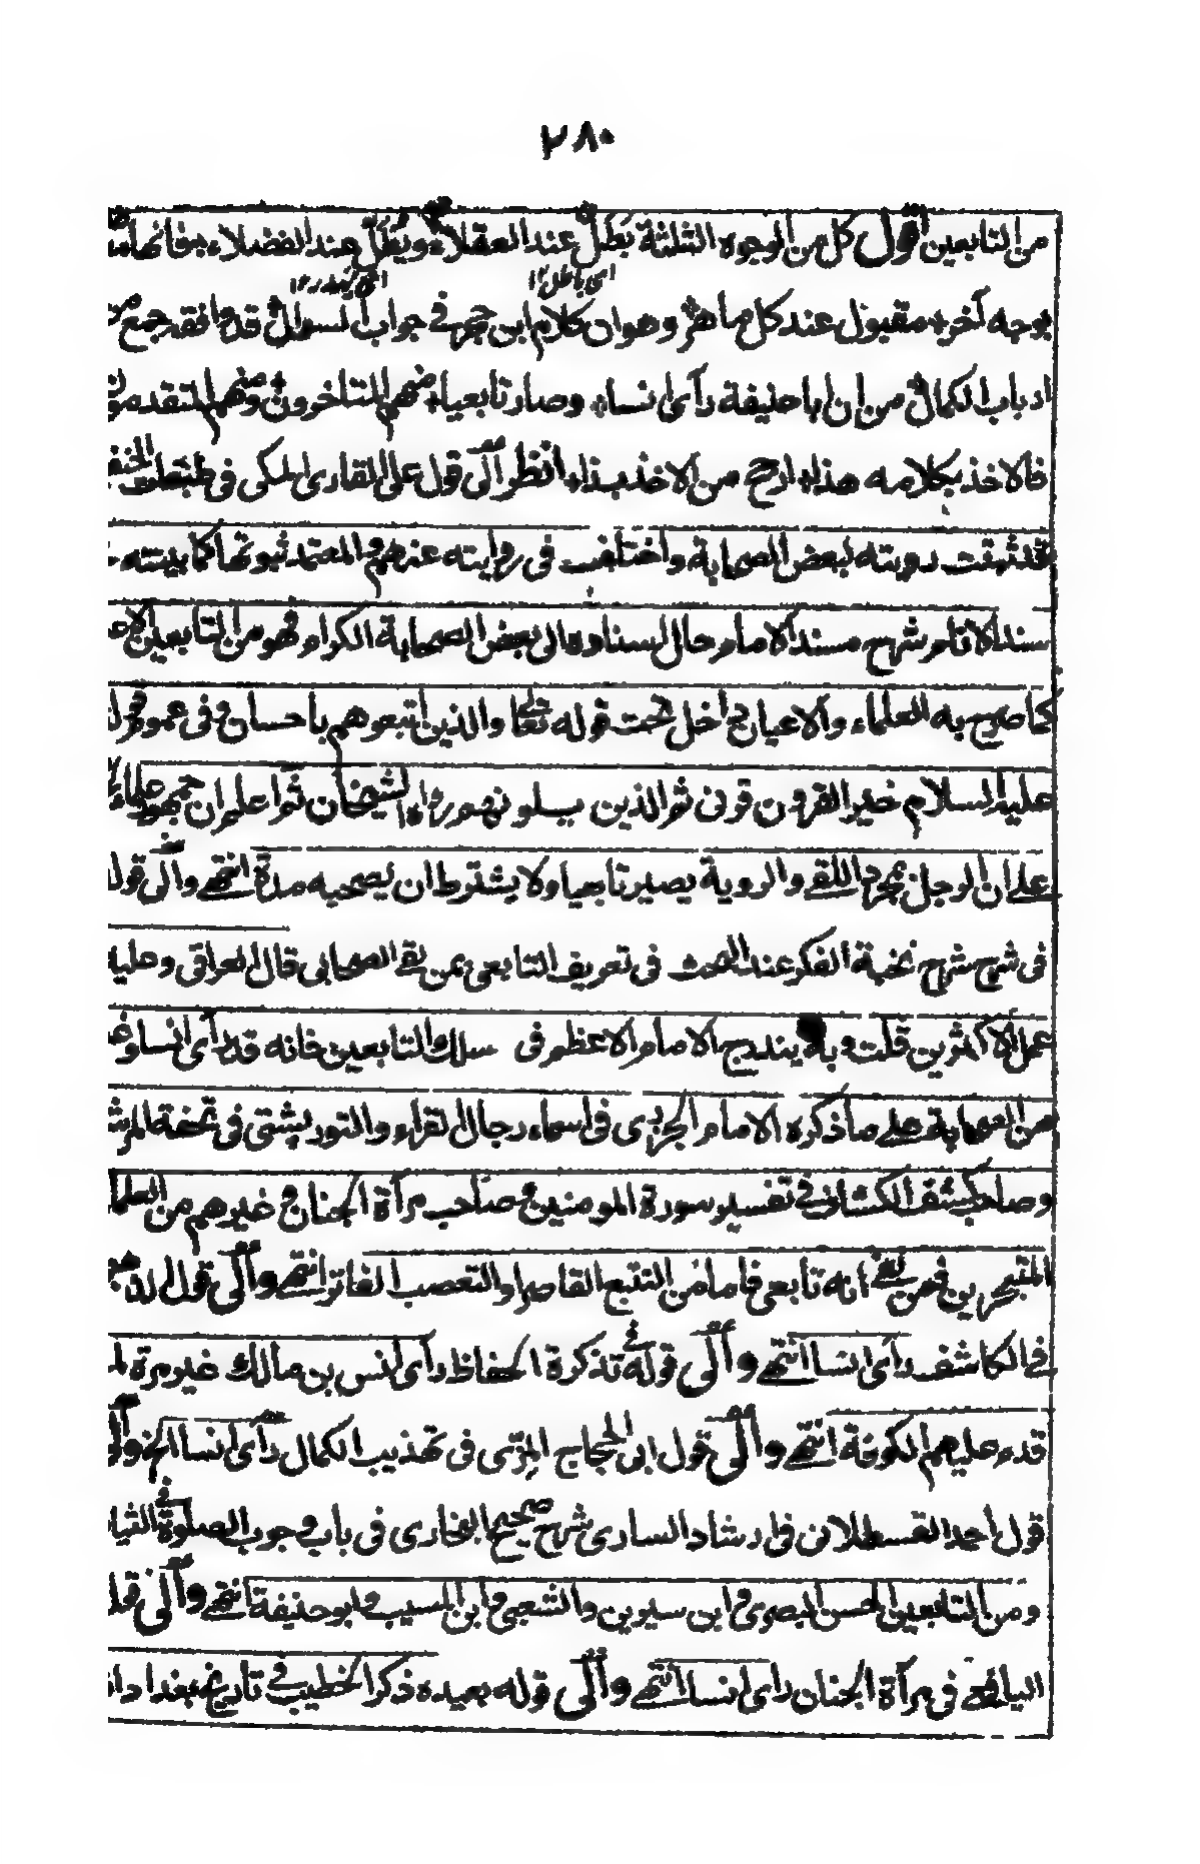 ٢٨٠
من التابعين اقول كل من الوجوه الثلثة يبطل عند العقلاء ويبطل عند الفضلاء
اى باطل ١٢
بوجه آخر مقبول عند كل ماهر وهو ان كلام ابن حجر فى جواب السوال قد وافقه جمع من
ارباب الكمال من ان ابا حنيفة رأى انسا وصار تابعيا منهم المتاخرون ومنهم المتقدمون
فالاخذ بكلامه هذا ارجح من الاخذ بذا انظر الى قول على القارى المكى فى طبقات الحنف
قد ثبت رويته لبعض الصحابة واختلف فى روايته عنهم والمعتمد ثبوتها كما بينته
سند الانام شرح مسند الامام حال اسناده الى بعض الصحابة الكرام فهو من التابعين الاعـ
كما صرح به العلماء والاعيان داخل تحت قوله تعالى والذين اتبعوهم باحسان وفى عموم قول
عليه السلام خير القرون قرنى ثم الذين يلونهم رواه الشيخان ثم اعلم ان جمهور علماء
على ان الرجل بمجرد اللقى والروية يصير تابعيا ولا يشترط ان يصحبه مدة انتهى والى قول
فى شرح شرح نخبة الفكر عند البحث فى تعريف التابعى بمن لقى الصحابى قال العراقى وعليه
عمل الاكثرين قلت وبه يندرج الامام الاعظم فى سلك التابعين فانه قد رأى انسا وغـ
من الصحابة على ما ذكره الامام الجزرى فى اسماء رجال القراء والتوربشتى فى تحفة المرشـ
وصاحب كشف الكشاف فى تفسير سورة المومنين وصاحب مرآة الجنان وغيرهم من العلماء
المتبحرين فمن نفى انه تابعى فاما من التتبع القاصر او التعصب الفاتر انتهى والى قول الذهبى
فى الكاشف رأى انسا انتهى والى قوله فى تذكرة الحفاظ رأى انس بن مالك غير مرة لما
قدم عليهم الكوفة انتهى والى قول ابى الحجاج المزى فى تهذيب الكمال رأى انسا الخ والى
قول احمد القسطلانى فى ارشاد السارى شرح صحيح البخارى فى باب وجوب الصلوة فى الثياب
ومن التابعين الحسن البصرى وابن سيرين والشعبى وابن المسيب وابو حنيفة انتهى والى قول
اليافعى فى مرآة الجنان رأى انسا انتهى والى قوله بعيده ذكر الخطيب فى تاريخ بغداد انـ